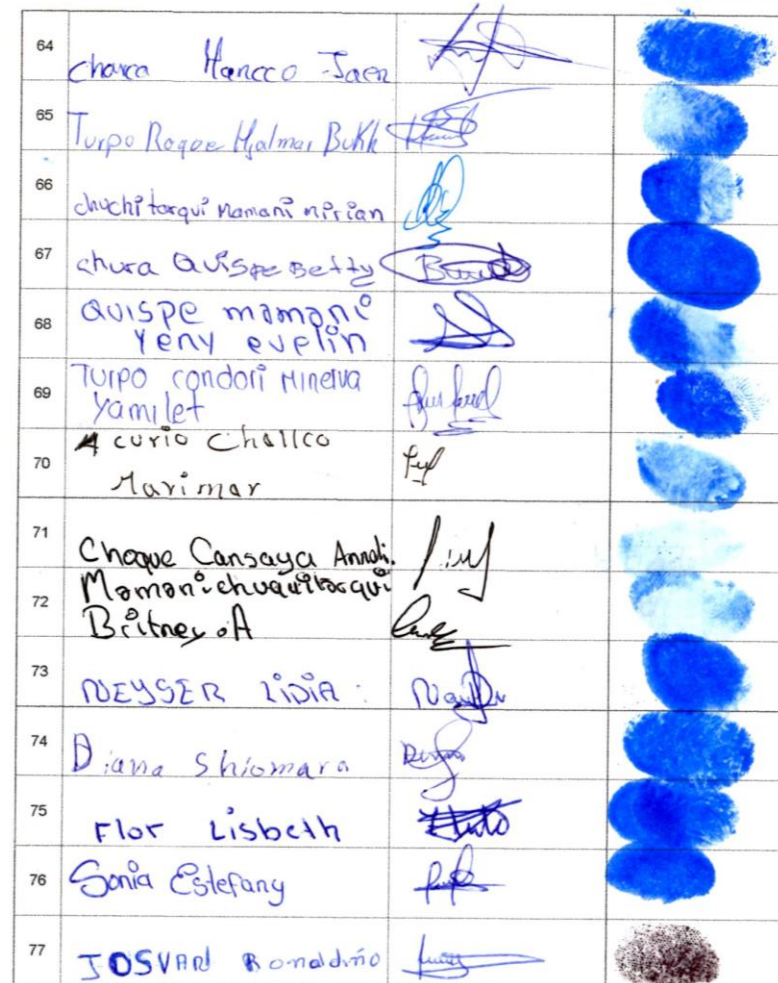 64 Charca Hancco Jaen
65 Turpo Roque Hjalmar BuKh
66 chuchi tarqui Mamani mirian
67 chura Quispe Betty
68 QUISPE mamani
Yeny evelin
69 Turpo condori Minerva
Yamilet
70 Acurio Challco
Marimar
71 Choque Cansaya Annali.
Mamani chuquitarqui
72 Britney .A
73 NEYSER LIDIA
74 Diana Shiomara
75 Flor Lisbeth
76 Sonia Estefany
77 JOSVAN Ronaldiño